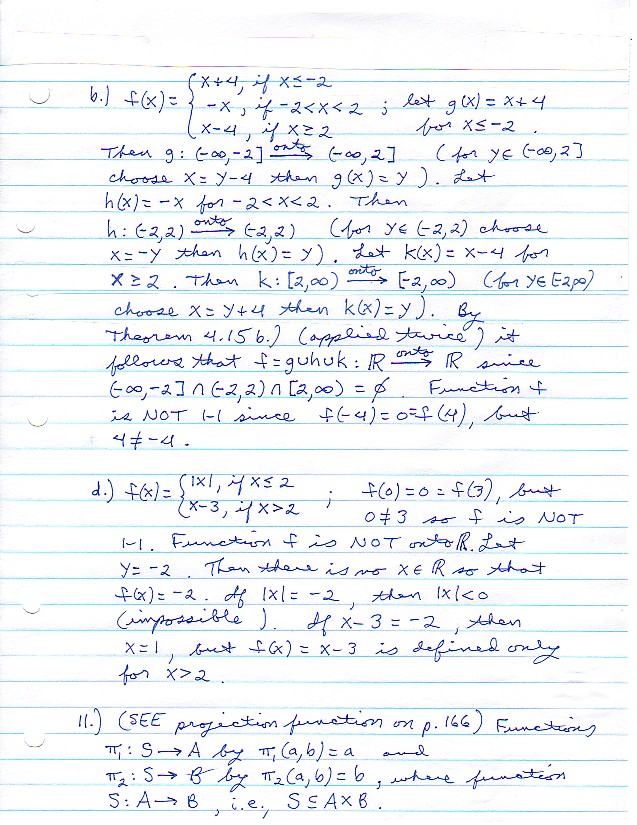 b.) f(x) = { x+4, if x ≤ -2
-x, if -2<x<2 ; let g(x) = x+4
x-4, if x ≥ 2 for x ≤ -2.
Then g: (-∞,-2] onto→ (-∞,2] (for y∈(-∞,2]
choose x = y-4 then g(x) = y). Let
h(x) = -x for -2<x<2. Then
h: (-2,2) onto→ (-2,2) (for y∈(-2,2) choose
x = -y then h(x) = y). Let k(x) = x-4 for
x ≥ 2. Then k: [2,∞) onto→ [-2,∞) (for y∈[-2,∞)
choose x = y+4 then k(x) = y). By
Theorem 4.15 b.) (applied twice) it
follows that f = g∪h∪k: ℝ onto→ ℝ since
(-∞,-2] ∩ (-2,2) ∩ [2,∞) = ∅. Function f
is NOT 1-1 since f(-4) = 0 = f(4), but
4 ≠ -4.
d.) f(x) = { |x|, if x ≤ 2 ; f(0) = 0 = f(3), but
x-3, if x>2 0 ≠ 3 so f is NOT
1-1. Function f is NOT onto ℝ. Let
y = -2. Then there is no x∈ℝ so that
f(x) = -2. If |x| = -2, then |x|<0
(impossible). If x-3 = -2, then
x = 1, but f(x) = x-3 is defined only
for x>2.
11.) (SEE projection function on p. 166) Functions
π₁: S → A by π₁(a,b) = a and
π₂: S → B by π₂(a,b) = b, where function
S: A → B, i.e., S ⊆ A×B.